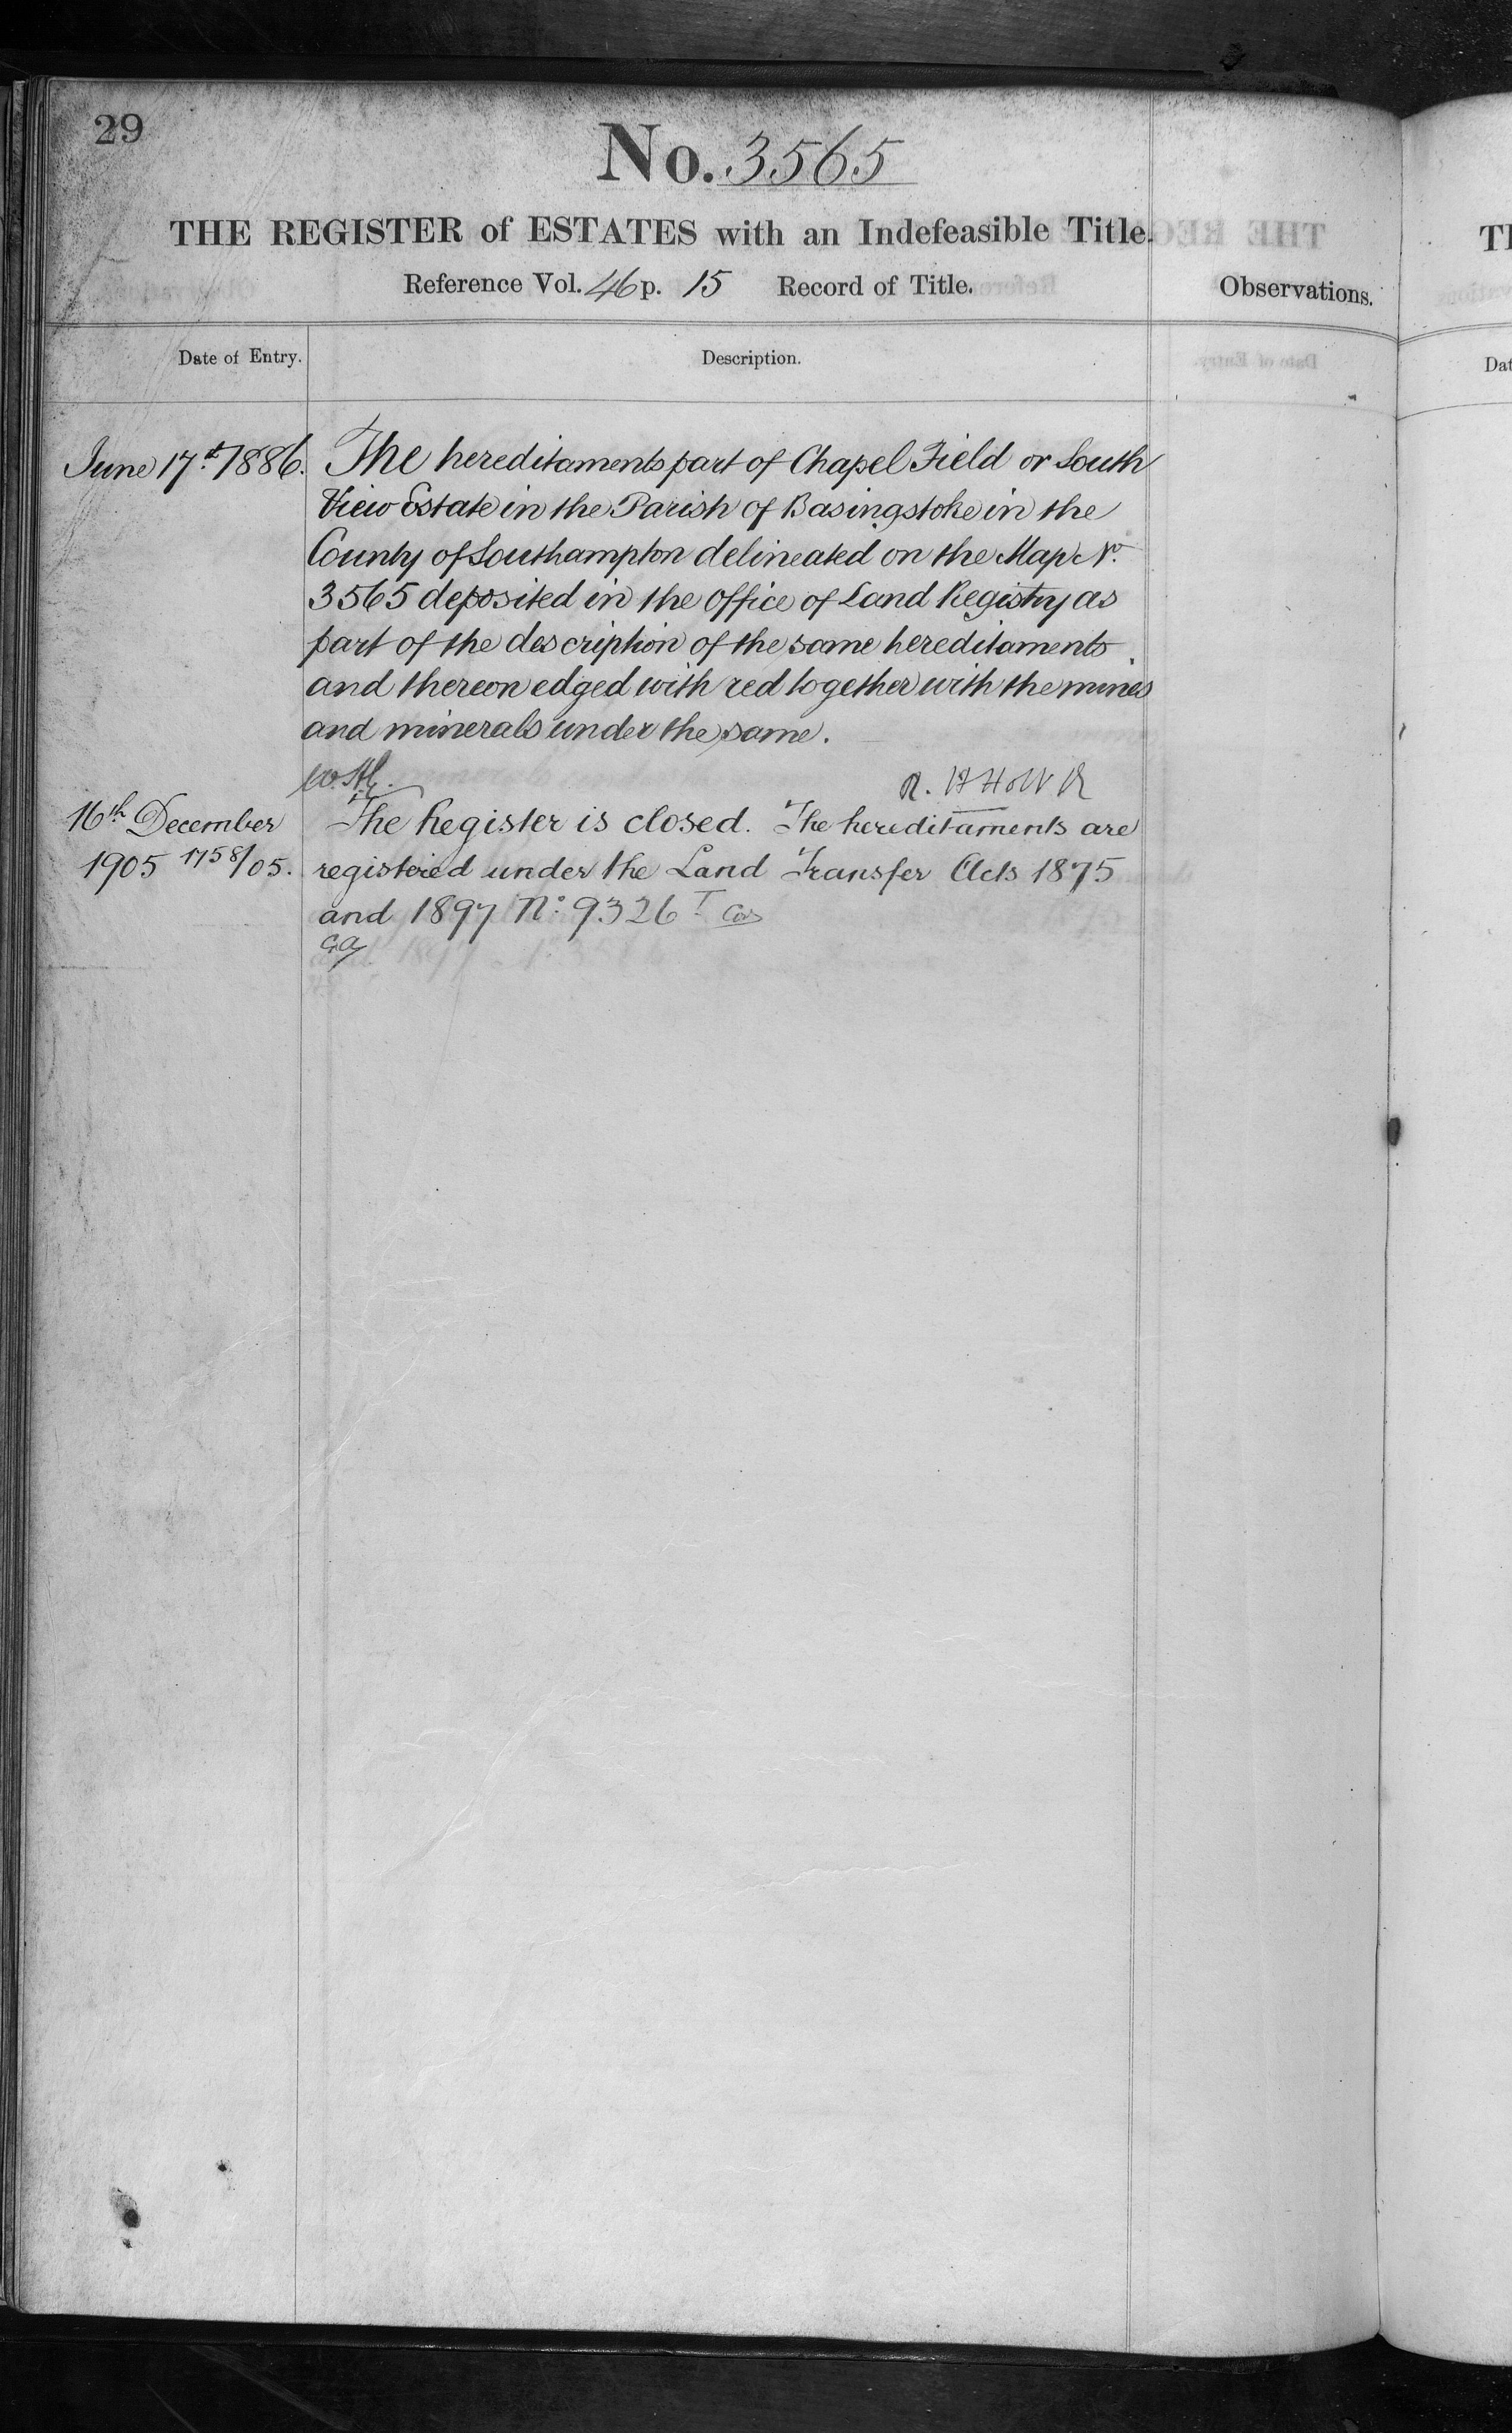 29
No. 3565
THE REGISTER of ESTATES with an Indefeasible Title.
Reference Vol. 46 p. 15 Record of Title.
Observations.
Date of Entry.
Description.
June 17th 1886.
The hereditaments part of Chapel Field or South
View Estate in the Parish of Basingstoke in the
County of Southampton delineated on the Map No.
3565 deposited in the office of Land Registry as
part of the description of the same hereditaments
and thereon edged with red together with the mines
and minerals under the same.
16th December
1905 1758/05.
The Register is closed. The hereditaments are
registered under the Land Transfer Acts 1875
and 1897 No. 9326